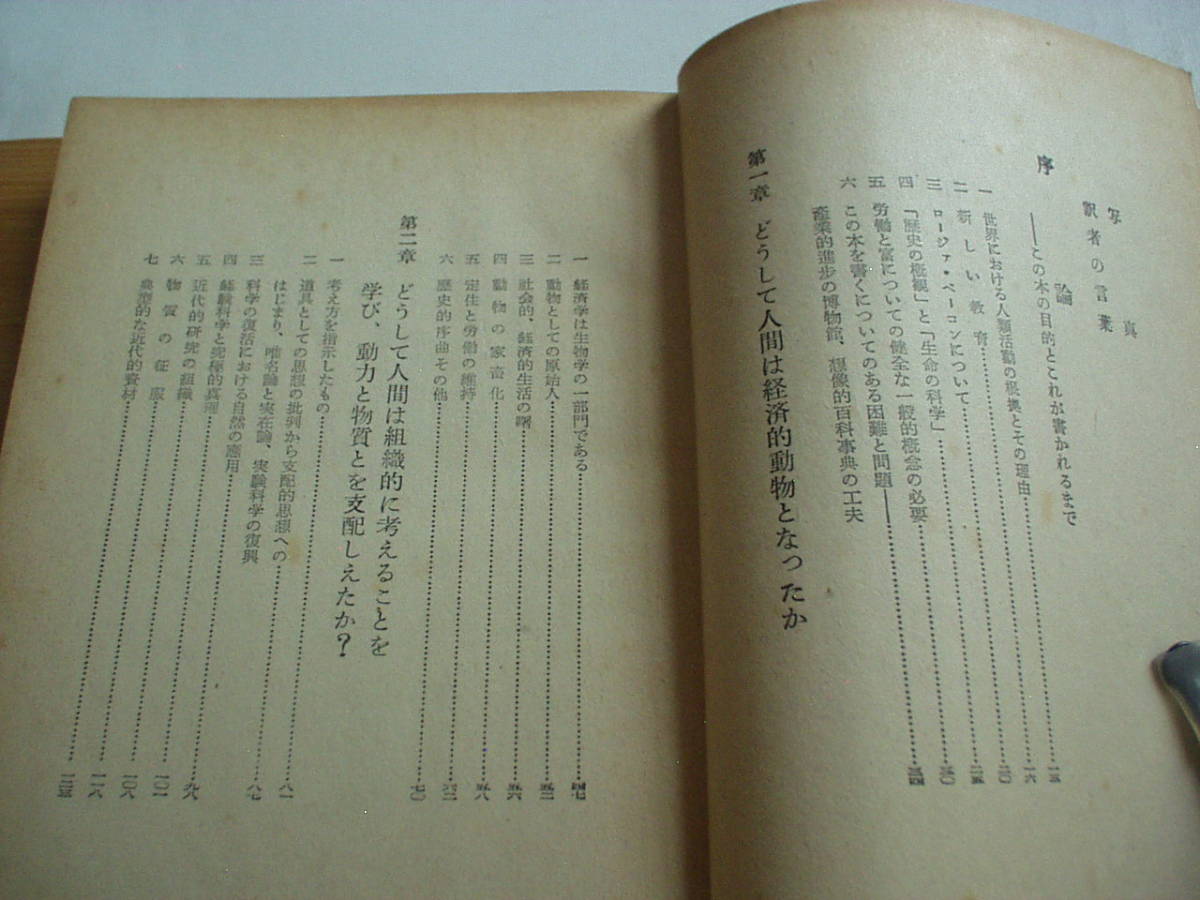 写真
訳者の言葉
序論
――この本の目的とこれが書かれるまで……一五
一 世界における人類活動の根拠とその理由……一六
二 新しい教育……二〇
三 ロージァ・ベーコンについて……二五
四 「歴史の概観」と「生命の科学」……三〇
五 労働と富についての健全な一般的概念の必要……三四
六 この本を書くについてのある困難と問題――
産業的進歩の博物館、想像的百科事典の工夫
第一章 どうして人間は経済的動物となったか
一 経済学は生物学の一部門である……四七
二 動物としての原始人……五二
三 社会的、経済的生活の曙……五六
四 動物の家畜化……五八
五 定住と労働の維持……六二
六 歴史的序曲その他……七〇
第二章 どうして人間は組織的に考えることを
学び、動力と物質とを支配しえたか?
一 考え方を指示したもの……
二 道具としての思想の批判から支配的思想への……八一
はじまり、唯名論と実在論、実験科学の復興
三 科学の復活における自然の應用……八七
四 経験科学と究極的真理……
五 近代的研究の組織……九八
六 物質の征服……一〇一
七 典型的な近代的資材……一〇八
一一六